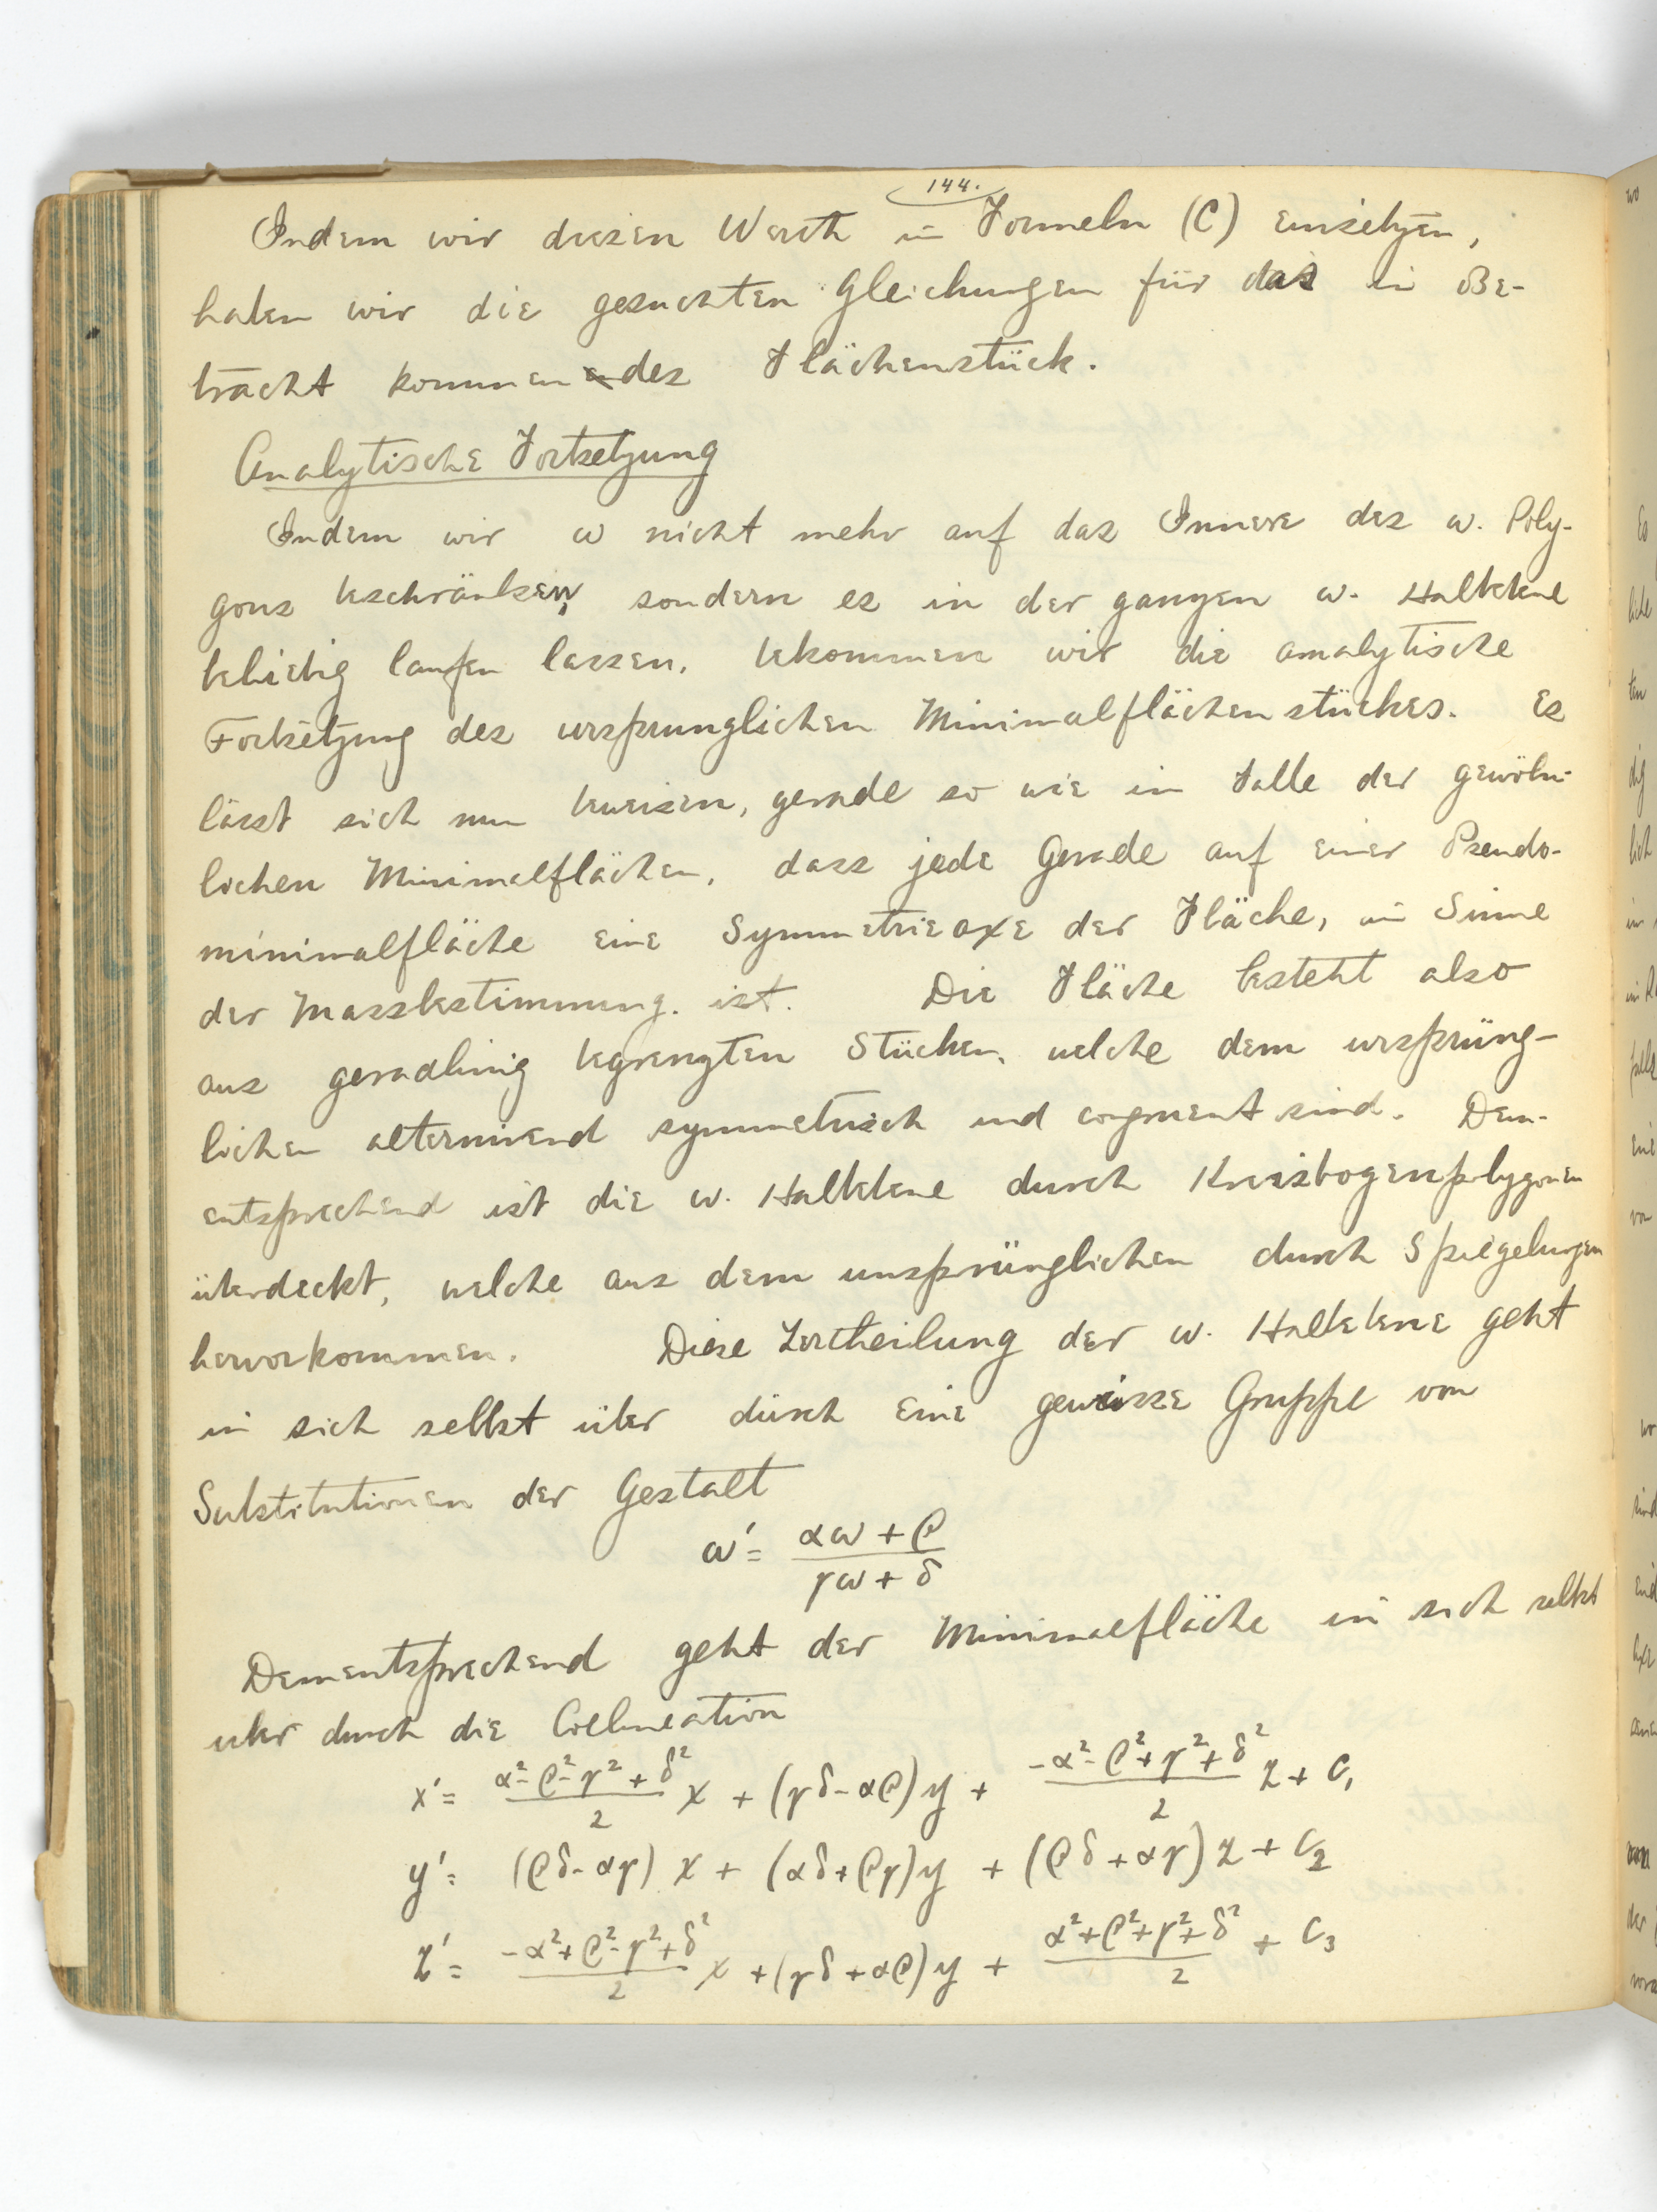 144.
Indem wir diesen Werth in Formeln (C) einsetzen,
haben wir die gesuchten Gleichungen für das in Be-
tracht kommendes Flächenstück.
Analytische Fortsetzung
Indem wir ω nicht mehr auf das Innere des ω. Poly-
gons beschränken, sondern es in der ganzen ω. Halbebene
beliebig laufen lassen, bekommen wir die analytische
Fortsetzung des ursprunglichen Minimalflächenstückes. Es
lässt sich nun beweisen, gerade so wie im Falle der gewöhn-
lichen Minimalflächen, dass jede Gerade auf einer Pseudo-
minimalfläche eine Symmetrieaxe der Fläche, im Sinne
der Massbestimmung. ist. Die Fläche besteht also
aus geradlinig begrenzten Stücken, welche dem ursprüng-
lichen alternirend symmetrisch und congruent sind. Dem-
entsprechend ist die ω. Halbebene durch Kreisbogenpolygonen
überdeckt, welche aus dem ursprünglichen durch Spiegelungen
hervorkommen. Diese Zertheilung der ω. Halbebene geht
in sich selbst über durch eine gewisse Gruppe von
Substitutionen der Gestalt
ω' = (αω + β)/(γω + δ)
Dementsprechend geht der Minimalfläche in sich selbst
uber durch die Collineation
x' = (α² - β² - γ² + δ²)/2 x + (γδ - αβ) y + (-α² - β² + γ² + δ²)/2 z + C₁
y' = (βδ - αγ) x + (αδ + βγ) y + (βδ + αγ) z + C₂
z' = (-α² + β² - γ² + δ²)/2 x + (γδ + αβ) y + (α² + β² + γ² + δ²)/2 + C₃